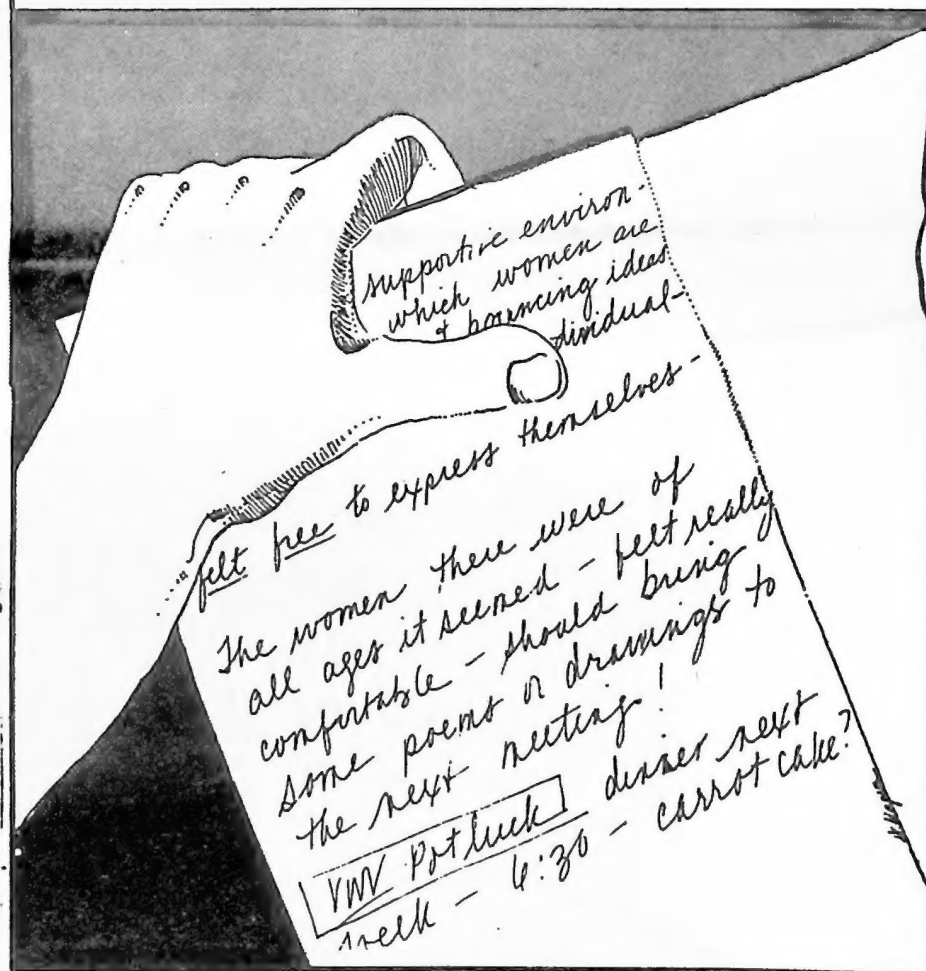 supportive environ-
which women are
+ bouncing ideas
dividual-
felt free to express themselves -
The women there were of
all ages it seemed - felt really
comfortable - should bring
some poems or drawings to
the next meeting!
VWV Potluck dinner next
week - 6:30 - carrot cake?